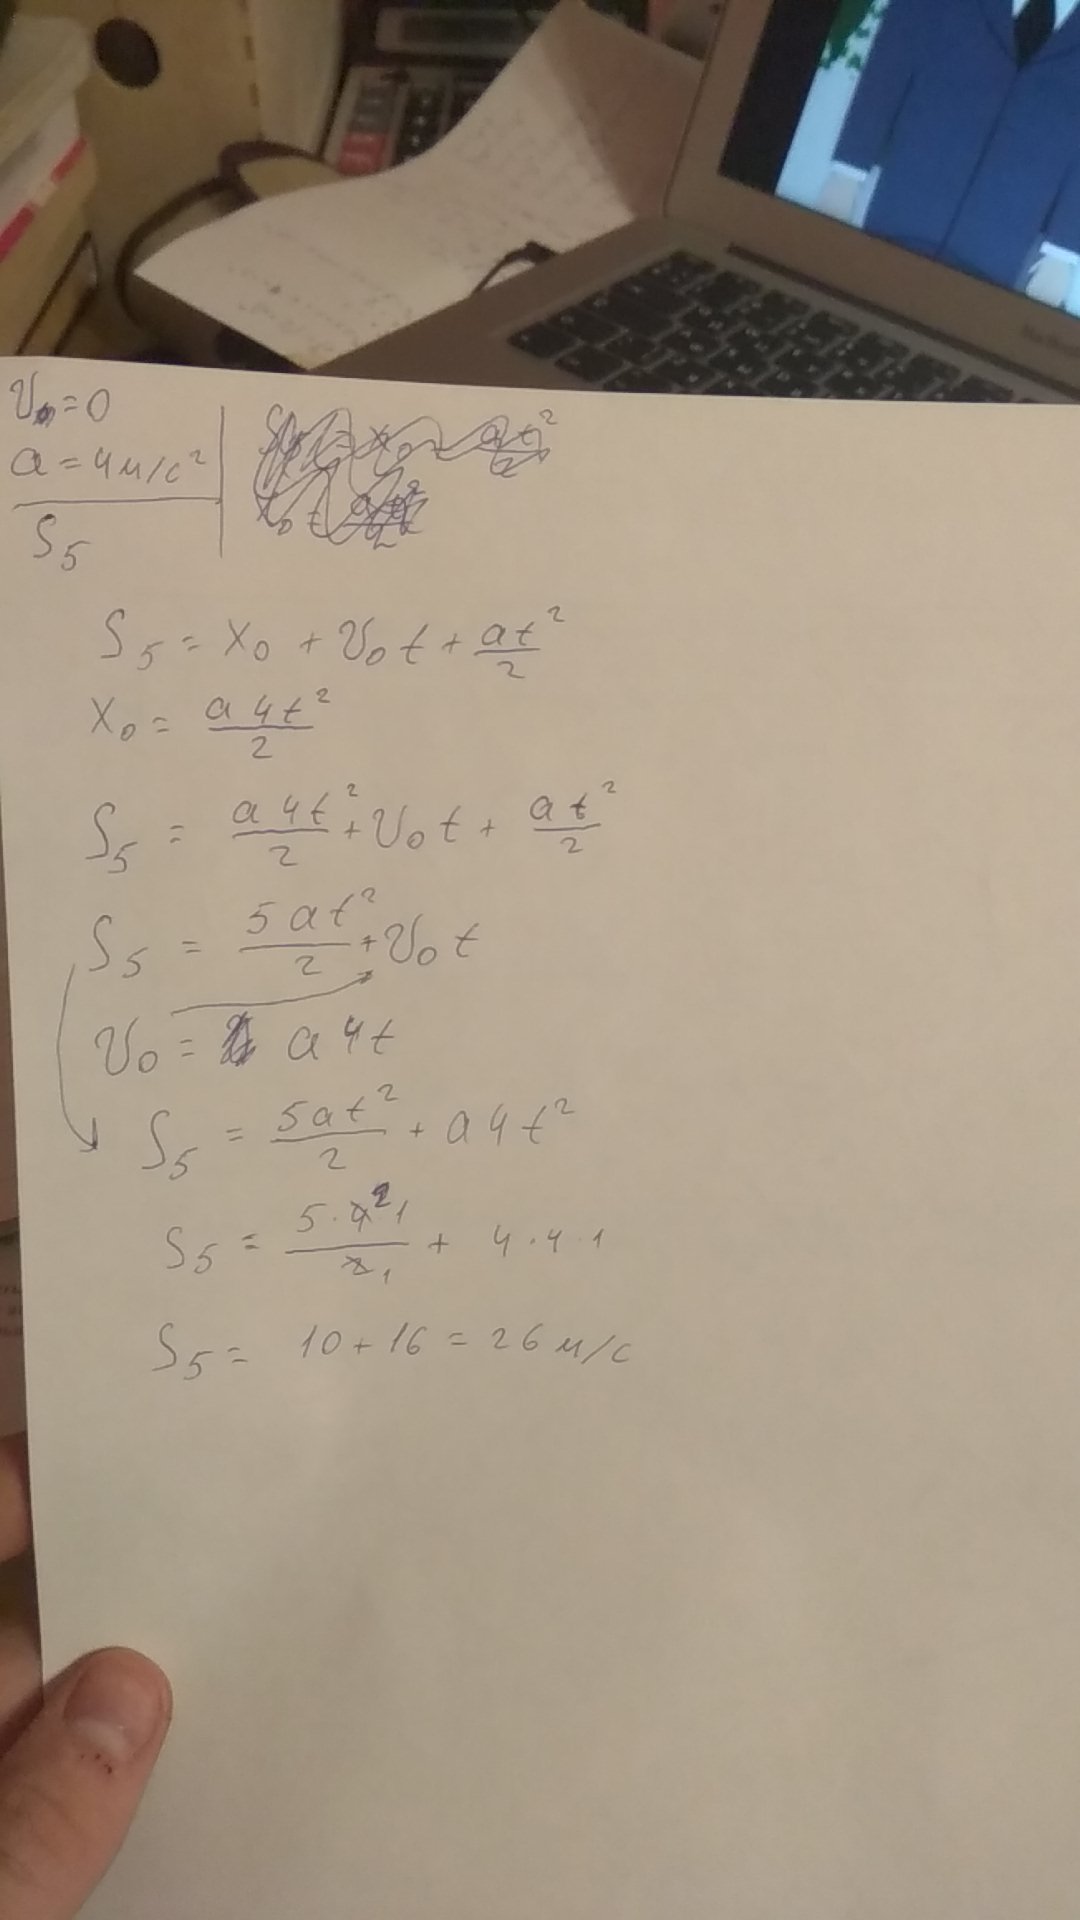 V₀ = 0
a = 4 м/с²
S₅
S₅ = x₀ + V₀ t + at²/2
x₀ = a 4 t²/2
S₅ = a 4 t²/2 + V₀ t + at²/2
S₅ = 5 a t²/2 + V₀ t
V₀ = a 4 t
S₅ = 5 a t²/2 + a 4 t²
S₅ = 5 · 4² 1/2 1 + 4 · 4 · 1
S₅ = 10 + 16 = 26 м/с